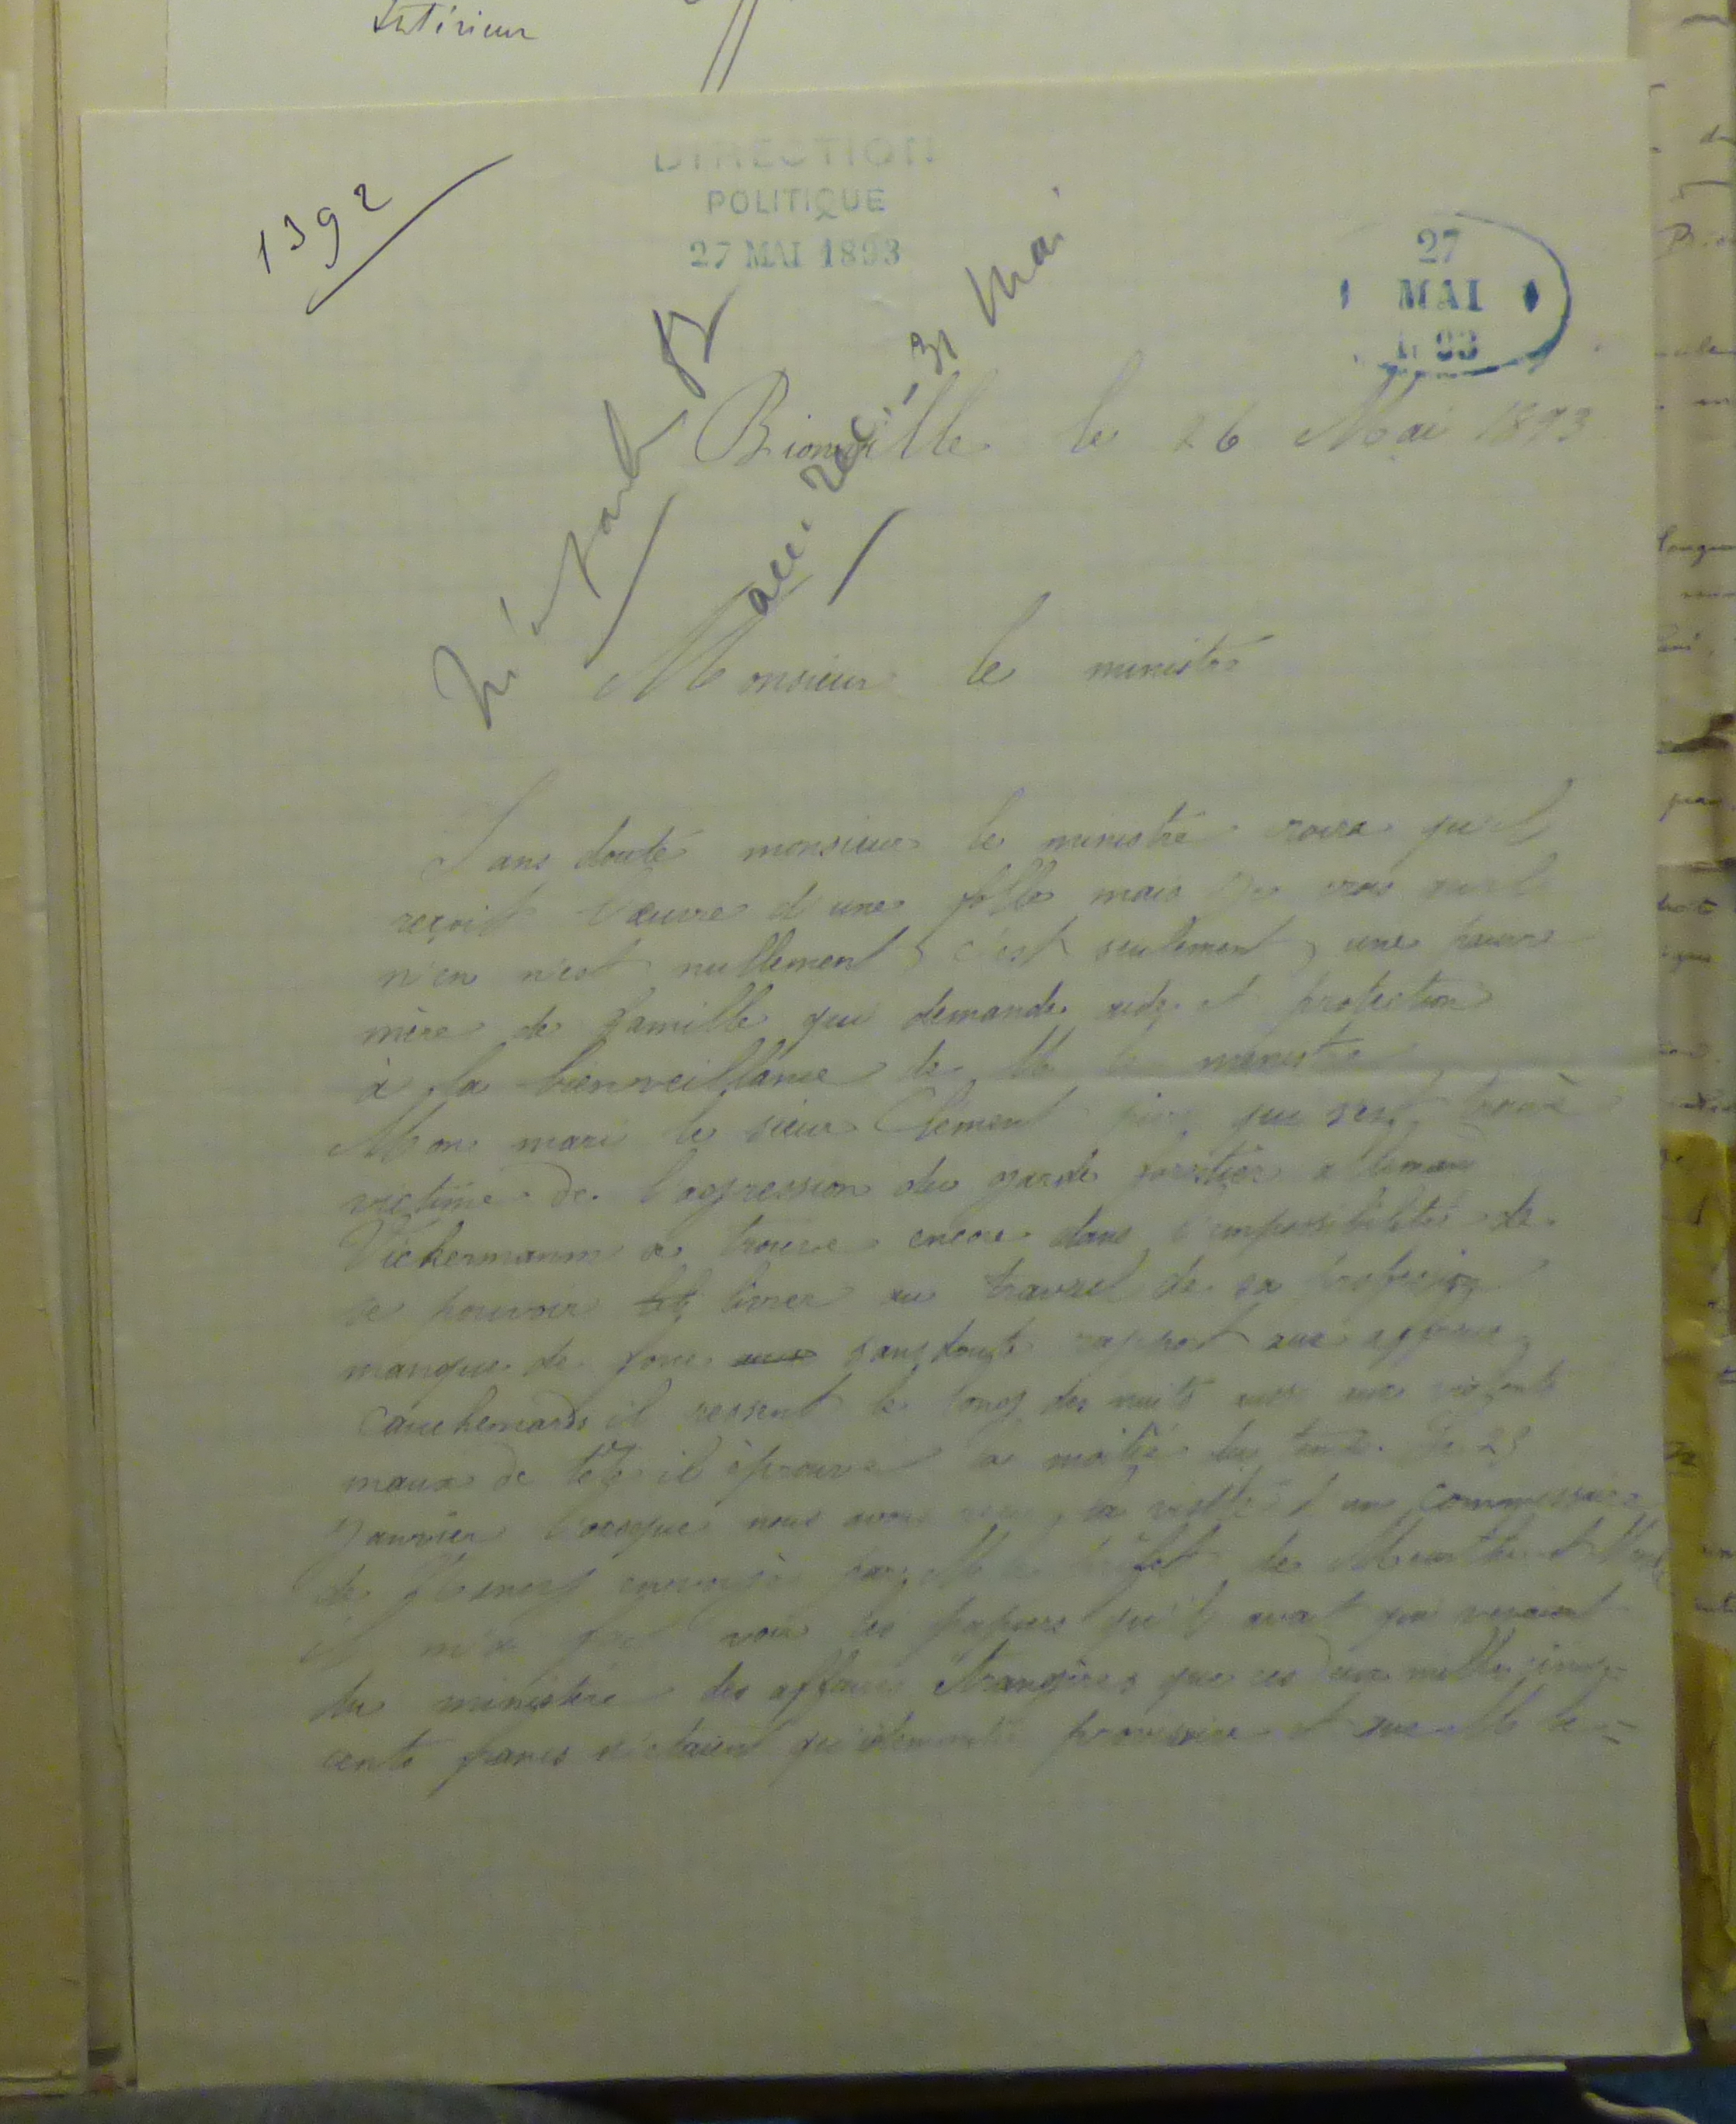 Intérieur
1392
DIRECTION
POLITIQUE
27 MAI 1893
27
MAI
93
31 Mai
Bionville le 26 Mai 1893
Monsieur le ministre
Sans doute monsieur le ministre croira qu'il
reçoit l'œuvre d'une folle mais je crois qu'il
n'en n'est nullement c'est seulement une pauvre
mère de famille qui demande aide et protection
à la bienveillance de M le ministre
Mon mari le sieur Clement qui s'est trouvé
victime de l'agression du garde forestier alleman
Vickermann a trouve encore dans l'impossibilité de
se pouvoir livrer au travail de sa profession
manque de force sans doute rapport aux affreux
cauchemards il ressent le long des nuits avec
maux de tête il éprouve la moitié du temps. Le 23
janvier lorsque nous avons la visite d'un commissaire
de par M le préfet de Meurthe et
il m'a fait voir les papiers qu'il avait qui venaient
du ministère des affaires étrangères que ces deux mille cinq-
cents francs n'étaient provisoire et que M le-